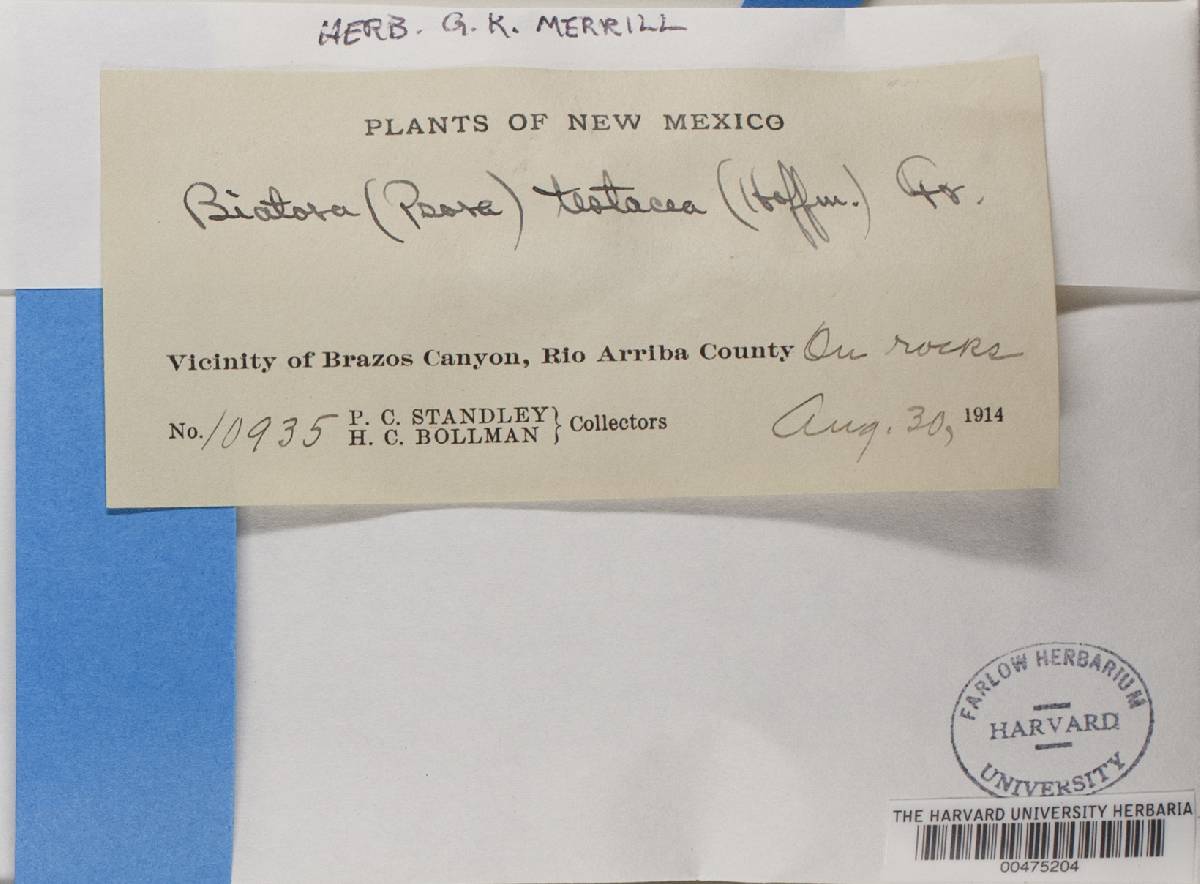 HERB. G. K. MERRILL
PLANTS OF NEW MEXICO
Biatora (Psora) testacea (Hoffm.) Fr.
Vicinity of Brazos Canyon, Rio Arriba County On rocks
No. 10935 P. C. STANDLEY
H. C. BOLLMAN } Collectors Aug. 30, 1914
FARLOW HERBARIUM
HARVARD
UNIVERSITY
THE HARVARD UNIVERSITY HERBARIA
00475204